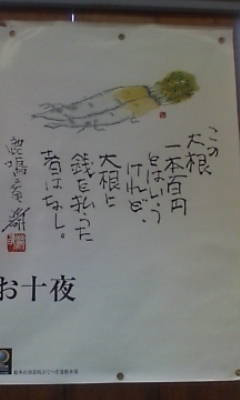 この
大根
一本百円
とはいう
けれど、
大根に
銭を払った
者はなし。
お十夜